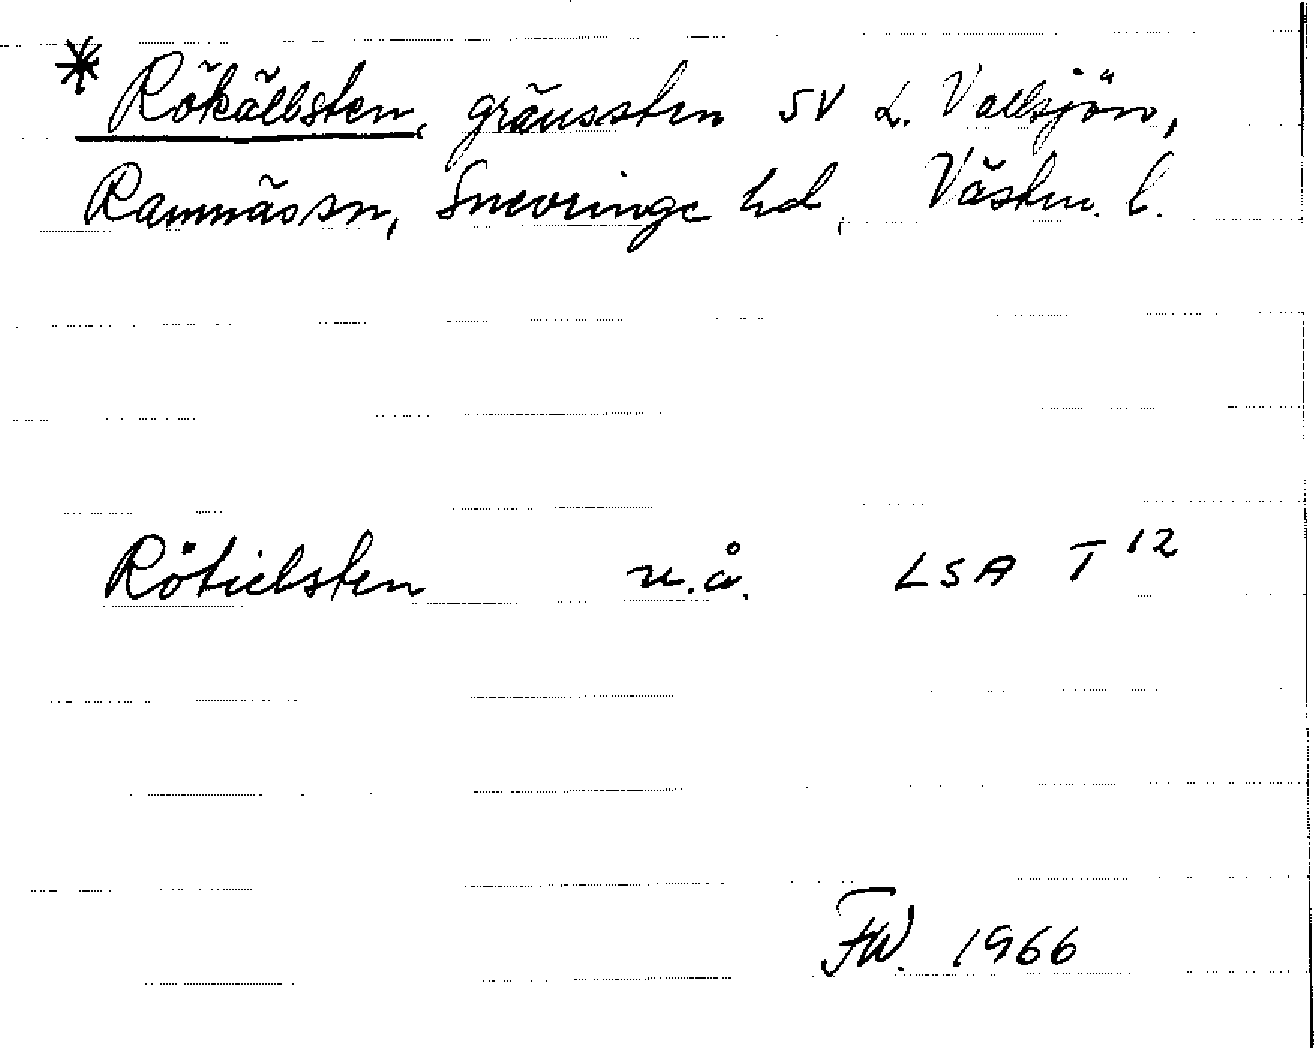 * Rökällsten, gränssten SV L. Vallsjön,
Ramnäs sn, Snevringe hd, Västm. l.
Rötielsten u.å. LSA T 12
FW. 1966